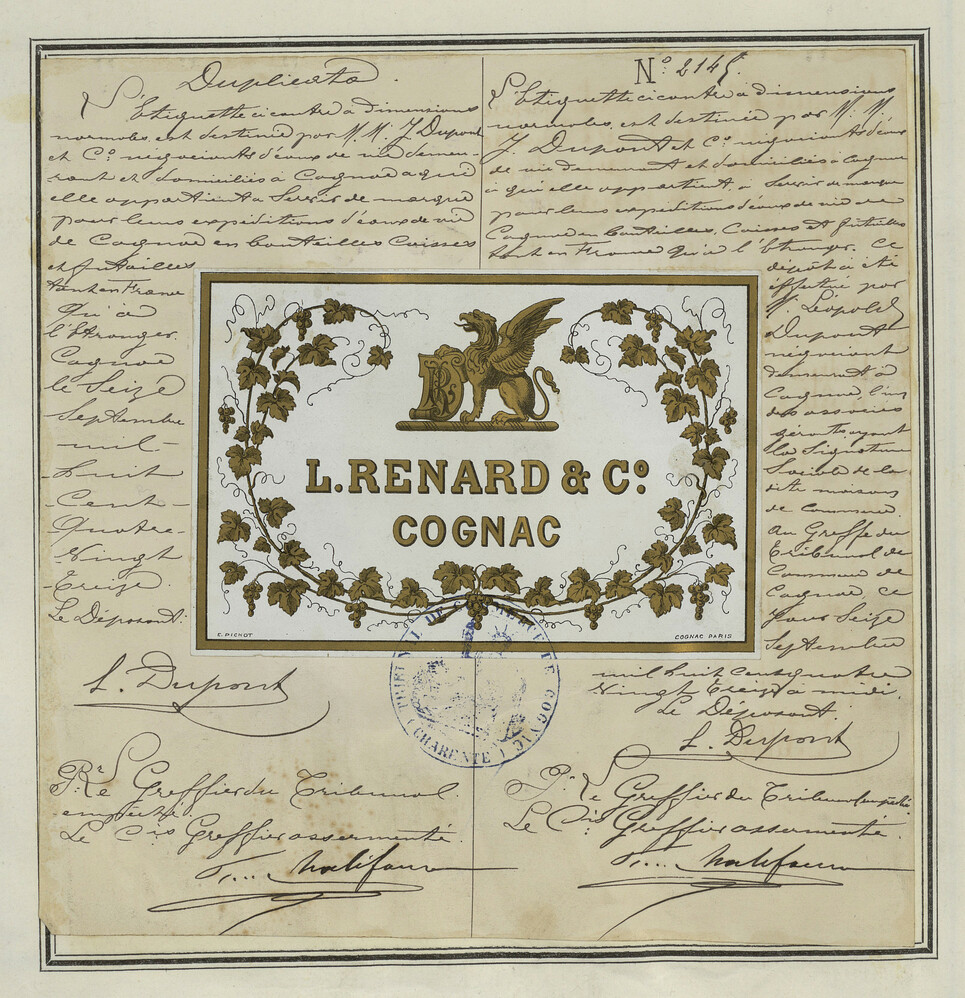 Duplicata.
L'Etiquette ci contre à dimensions
normales, est destinée par M.M. J. Dupont
et Cº. négociants d'eaux de vie demeu-
rant et domiciliés à Cognac a qui
elle appartient à Servir de marque
pour leurs expéditions d'eaux de vie
de Cognac en bouteilles Caisses
et futailles
tant en France
qu'à
l'Etranger.
Cognac
le Seize
Septembre
mil-
huit
-Cent-
Quatre-
Vingt
treize.
Le Déposant:
L. Dupont
Pr. Le Greffier du Tribunal
empêché
Le Cis Greffier assermenté.
Nº. 2145.
L'Etiquette ci contre à dimensions
normales, est destinée par M.M.
J. Dupont et Cº. négociants d'eaux
de vie demeurant et domiciliés à Cognac
à qui elle appartient, à Servir de marque
pour leurs expéditions d'eaux de vie de
Cognac en bouteilles, Caisses et futailles
tant en France qu'à l'Etranger. Ce
dépôt a été
effectué par
M. Léopold
Dupont
négociant
demeurant à
Cognac, l'un
des associés
gérants ayant
la Signature
Sociale de la
dite maison
de Commerce
au Greffe du
Tribunal de
Commerce de
Cognac, ce
jour Seize
Septembre
mil huit cent quatre
vingt treize à midi.
Le Déposant.
L. Dupont
Pr. Le Greffier du Tribunal empêché
Le Cis Greffier assermenté.
L. RENARD & Cº.
COGNAC
E. PICHOT
COGNAC PARIS
TRIBUNAL DE COGNAC
(CHARENTE)